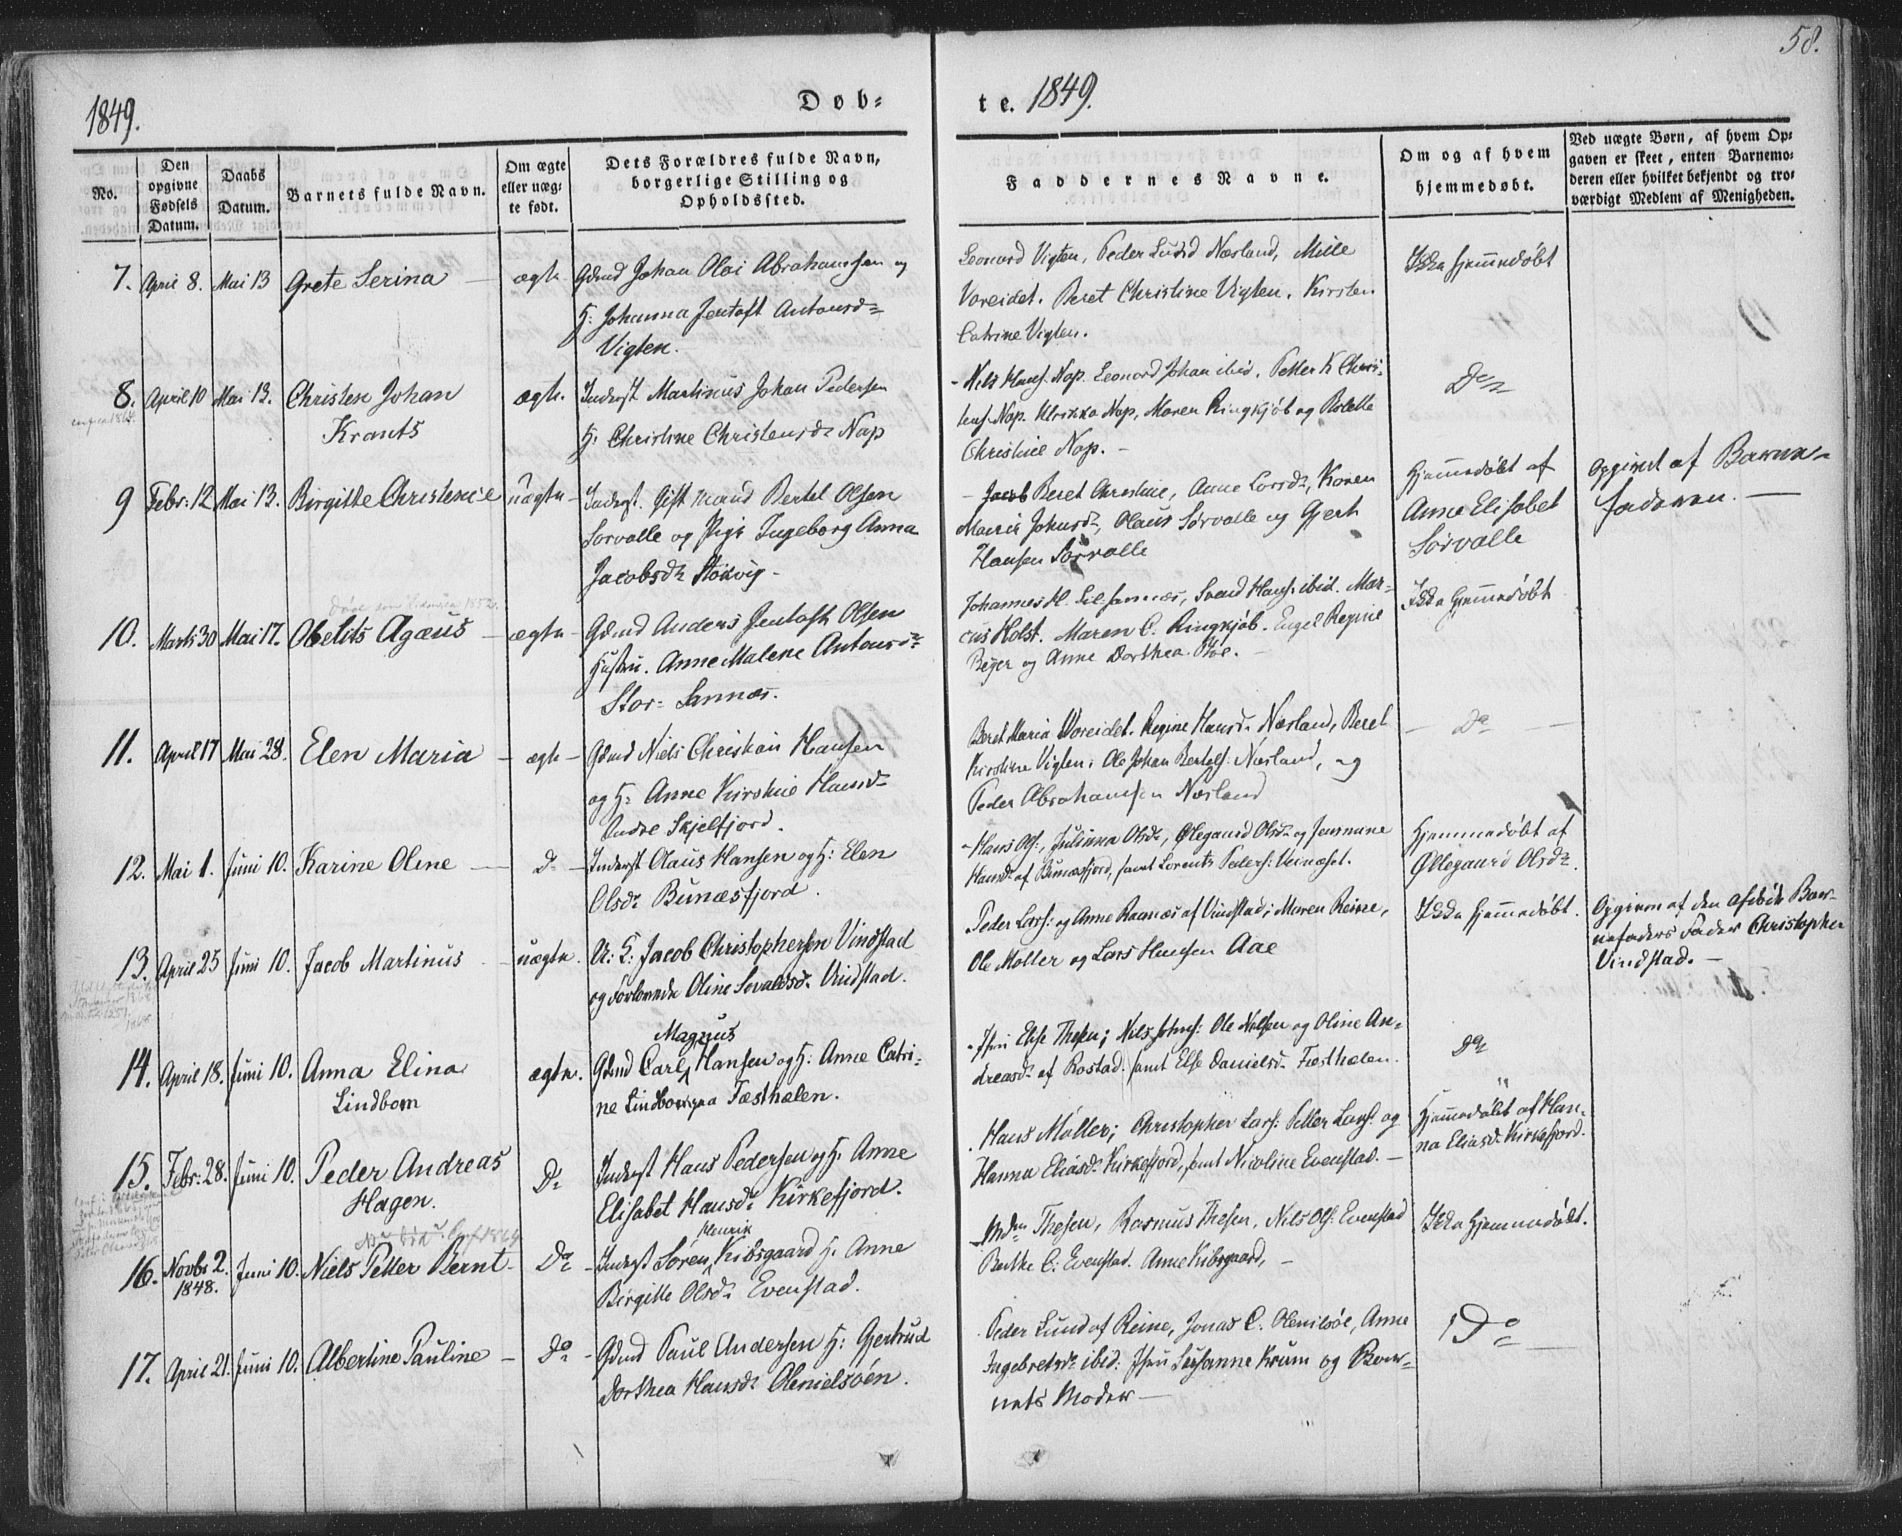 58.
1849.
Døb-
te. 1849.
No.
Den opgivne Fødsels Datum.
Daabs Datum.
Barnets fulde Navn.
Om ægte eller uægte født.
Dets Forældres fulde Navn, borgerlige Stilling og Opholdssted.
Faddernes Navne.
Om og af hvem hjemmedøbt.
Ved uægte Børn, af hvem Opgaven er skeet, enten Barnemoderen eller hvilket bekjendt og troværdigt Medlem af Menigheden.
7. April 8. Mai 13 Grete Serina — ægte Gdmd Johan Olai Abrahamsen og
H: Johanna Jentoft Antonsd.
Vigten.
Leonard Vigten, Peder Lund Næsland, Mille
Voreidet. Beret Christine Vigten. Kirsten
Catrine Vigten.
Ikke hjemmedøbt
8. April 10 Mai 13. Christen Johan
Krants
ægte. Inderst Martinus Johan Pedersen
H. Christine Christensd. Nap
Nils Hans. Nap. Leonord Johan ibid. Petter K Chris-
tens. Nap. Ulrikka Nap, Maren Ringkjøb og
Christine Nap. —
Do
9 Febr: 12 Mai 13. Birgitte Christence uægte Inderst. Gift mand Bertel Olsen
Sørvolle og Pige Ingeborg Anna
Jacobsd. Støkvig -
Beret Christine, Anne Larsd., Karen
Marie Johnsd., Olaus Sørvolle og Gjert
Hansen Sørvolle
Hjemmedøbt af
Anne Elisabet
Sørvolle
Opgivet af Barne-
faderen. —
10. Marts 30 Mai 17. Obelits Agæus — ægte Gdmd Anders Jentoft Olsen
Hustru. Anne Malene Antonsd.
Stor-Sannæs.
Johannes H. Lil Sannæs, Svend Hans. ibid. Mar-
cus Holst. Maren C. Ringkjøb. Engel Regine
Beyer og Anne Dorthea Støe. —
Ikke hjemmedøbt
11. April 17 Mai 28. Elen Maria — ægte Gdmd Niels Christian Hansen
og H: Anne Kirstine Hansd.
Indre Skjelfjord.
Beret Maria Voreidet. Regine Hansd. Næsland, Beret
Kirstine Vigten, Ole Johan Bertels. Næsland, og
Peder Abrahamsen Næsland
Do
12. Mai 1. Juni 10. Karine Olene — D. Inderst Olaus Hansen og H: Elen
Olsd. Bunæsfjord.
Hans Ols., Julianna Olsd., Ølegaard Olsd. og Jensmine
Hansd. af Bunæsfjord, samt Lorents Peders.
Hjemmedøbt af
Øllegaard Olsd.
13. April 25 Juni 10. Jacob Martinus — uægte. U: K: Jacob Christophersen Vindstad
og Forlovede Oline Sevaldsd. Vindstad.
Peder Lars. og Anne Raanæs af Vindstad; Maren Reine,
Ole Møller og Lars Hansen Aae
Ikke hjemmedøbt.
Opgiven af den afdøde Bar-
nefaders Fader Christopher
Vindstad. —
14. April 18. Juni 10. Anna Elina
Lindbom
ægte. Gdmd Carl Magnus Hansen og H: Anne Catri-
ne Lindbom paa Fæsthælen.
Jfru Else Thesen; Nils Johns: Ole Nilsen og Oline An-
dreasd. af Rostad, samt Else Danielsd. Fæsthælen.
Do
15. Febr: 28. Juni 10. Peder Andreas
Hagen.
D. Inderst Hans Pedersen og H. Anne
Elisabet Hansd. Kirkefjord.
Hans Møller; Christopher Lars: Petter Lars: og
Hanna Eliasd. Kirkefjord, samt Nicoline Evenstad. —
Hjemmedøbt af Han-
na Eliasd. Kirkefjord.
16. Novbr 2. 1848. Juni 10. Niels Petter Bernt Do Inderst Søren Henrik Kibsgaard H. Anne
Birgitte Olsd. Evenstad.
Mdm Thesen, Rasmus Thesen, Nils Ols: Evenstad
Berthe C: Evenstad. Anne Kibsgaard, —
Ikke hjemmedøbt.
17. April 21. Juni 10. Albertine Pauline — Do Gdmd Paul Andersen H: Gjertrud
Dorthea Hansd. Olenielsøen.
Peder Lund af Reine, Jonas C. Olenilsøe, Anne
Ingebretsd. ibid. Jfru Susanne Krum og Bar-
nets Moder —
Do